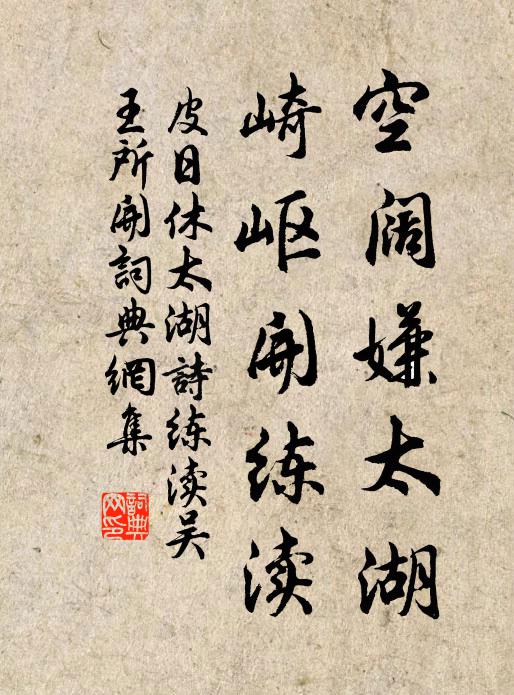 空阔嫌太湖
崎岖开练渎
皮日休太湖詩练渎吴
王所开詞典網集
詞典網印